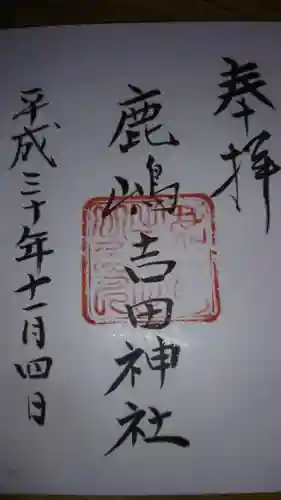 奉拝
鹿嶋吉田神社
平成三十年十一月四日